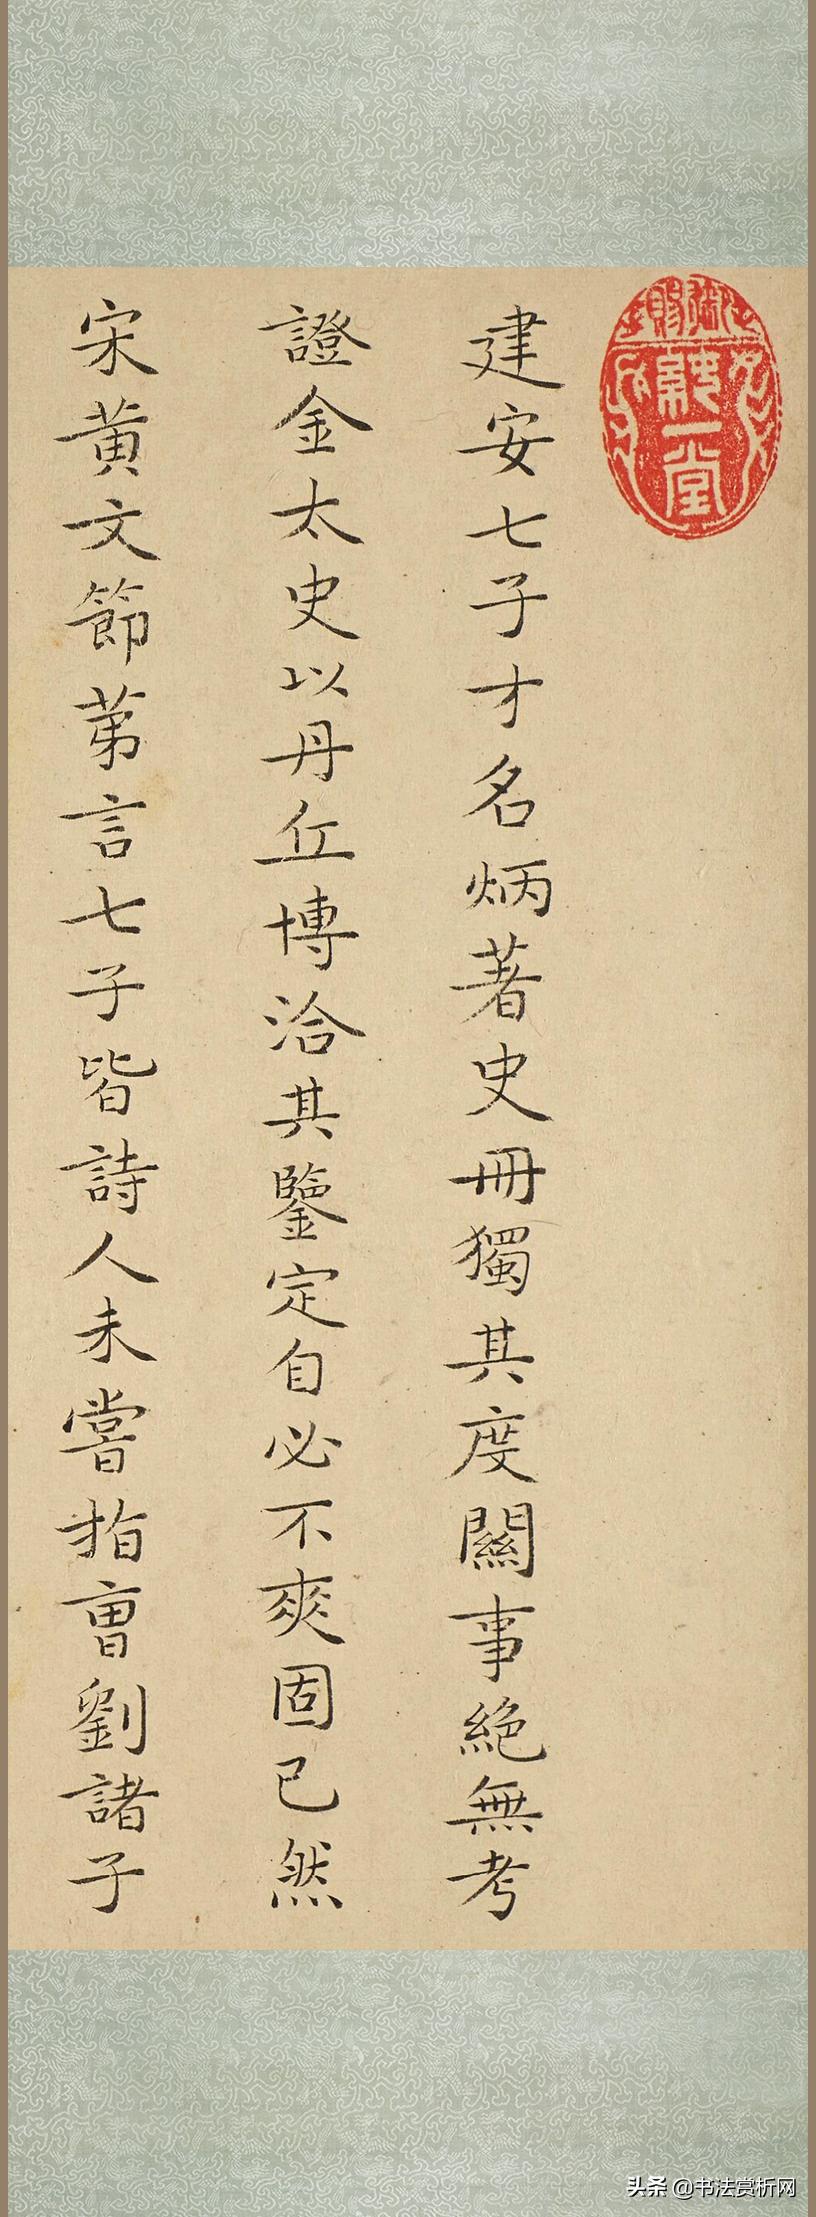 建安七子才名炳著史冊獨其度關事絶無考
證金太史以丹丘博洽其鑒定自必不爽固已然
宋黄文節苐言七子皆詩人未嘗指曹劉諸子
头条 @书法赏析网